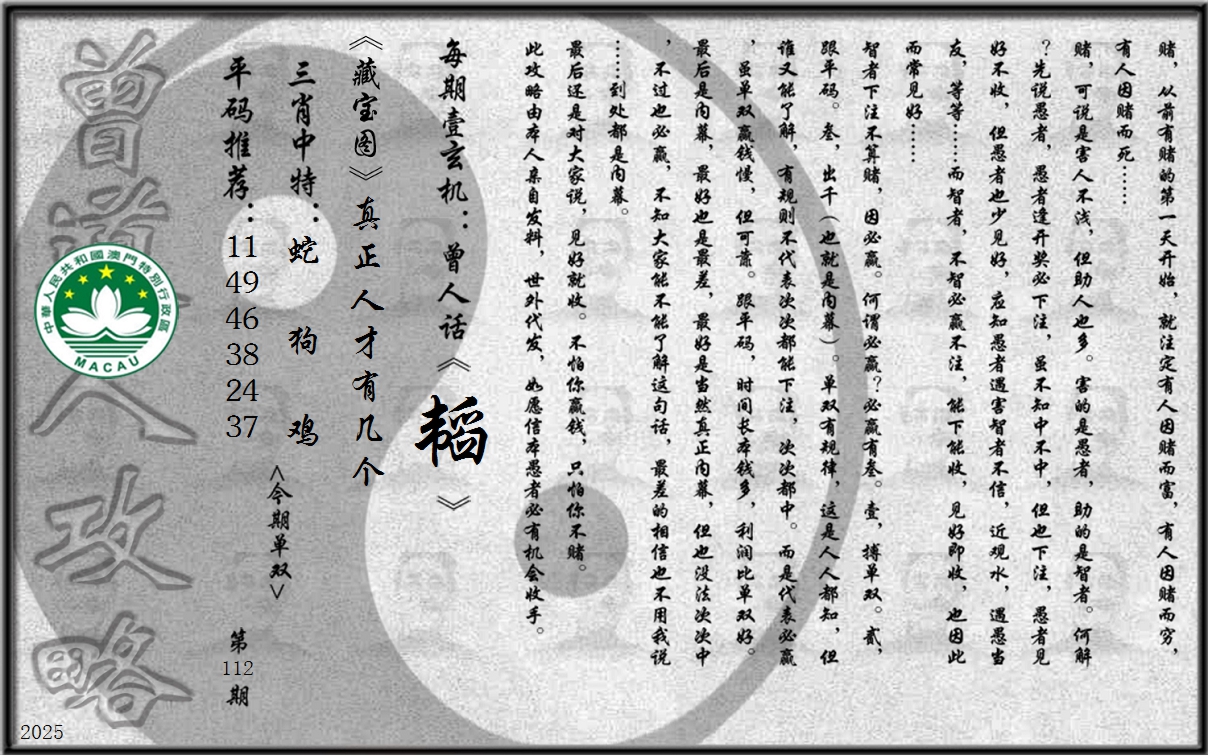 赌，从前有赌的第一天开始，就注定有人因赌而富，有人因赌而穷，
有人因赌而死……
赌，可说是害人不浅，但助人也多。害的是愚者，助的是智者。何解
？先说愚者，愚者逢开奖必下注，虽不知中不中，但也下注，愚者见
好不收，但愚者也少见好，应知愚者遇害智者不信，近观水，遇愚当
友，等等……而智者，不智必赢不注，能下能收，见好即收，也因此
而常见好……
智者下注不算赌，因必赢。何谓必赢？必赢有叁。壹，搏单双。贰，
跟平码。叁，出千（也就是内幕）。单双有规律，这是人人都知，但
谁又能了解，有规则不代表次次都能下注，次次都中。而是代表必赢
，虽单双赢钱慢，但可靠。跟平码，时间长本钱多，利润比单双好。
最后是内幕，最好也是最差，最好是当然真正内幕，但也没法次次中
，不过也必赢，不知大家能不能了解这句话，最差的相信也不用我说
……到处都是内幕。
最后还是对大家说，见好就收。不怕你赢钱，只怕你不赌。
此攻略由本人亲自发料，世外代发，如愿信本愚者必有机会收手。
每期壹玄机：曾人话《韬》
《藏宝图》真正人才有几个
三肖中特：蛇 狗 鸡
<今期单双>
平码推荐：
11
49
46
38
24
37
第
112
期
曾道人攻略
中華人民共和國澳門特別行政區
MACAU
2025